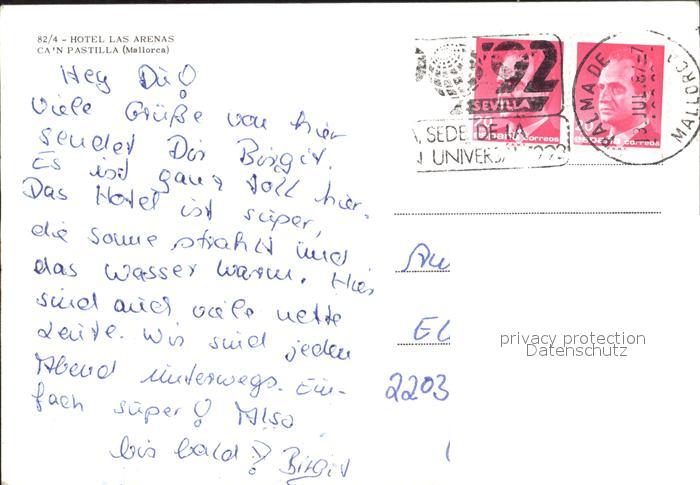 82/4 - HOTEL LAS ARENAS
CA'N PASTILLA (Mallorca)
Hey Du!
Viele Grüße von hier
sendet Dir Birgit.
Es ist ganz toll hier.
Das Hotel ist super,
die Sonne strahlt und
das Wasser warm. Hier
sind auch viele nette
Leute. Wir sind jeden
Abend unterwegs. Ein-
fach super! Also
bis bald! Birgit
'92
SEVILLA
SEDE DE LA
UNIVERSA 1992
España correos
España correos
PALMA DE
MALLORCA
JUL 87-7
An
EL
2203
privacy protection
Datenschutz